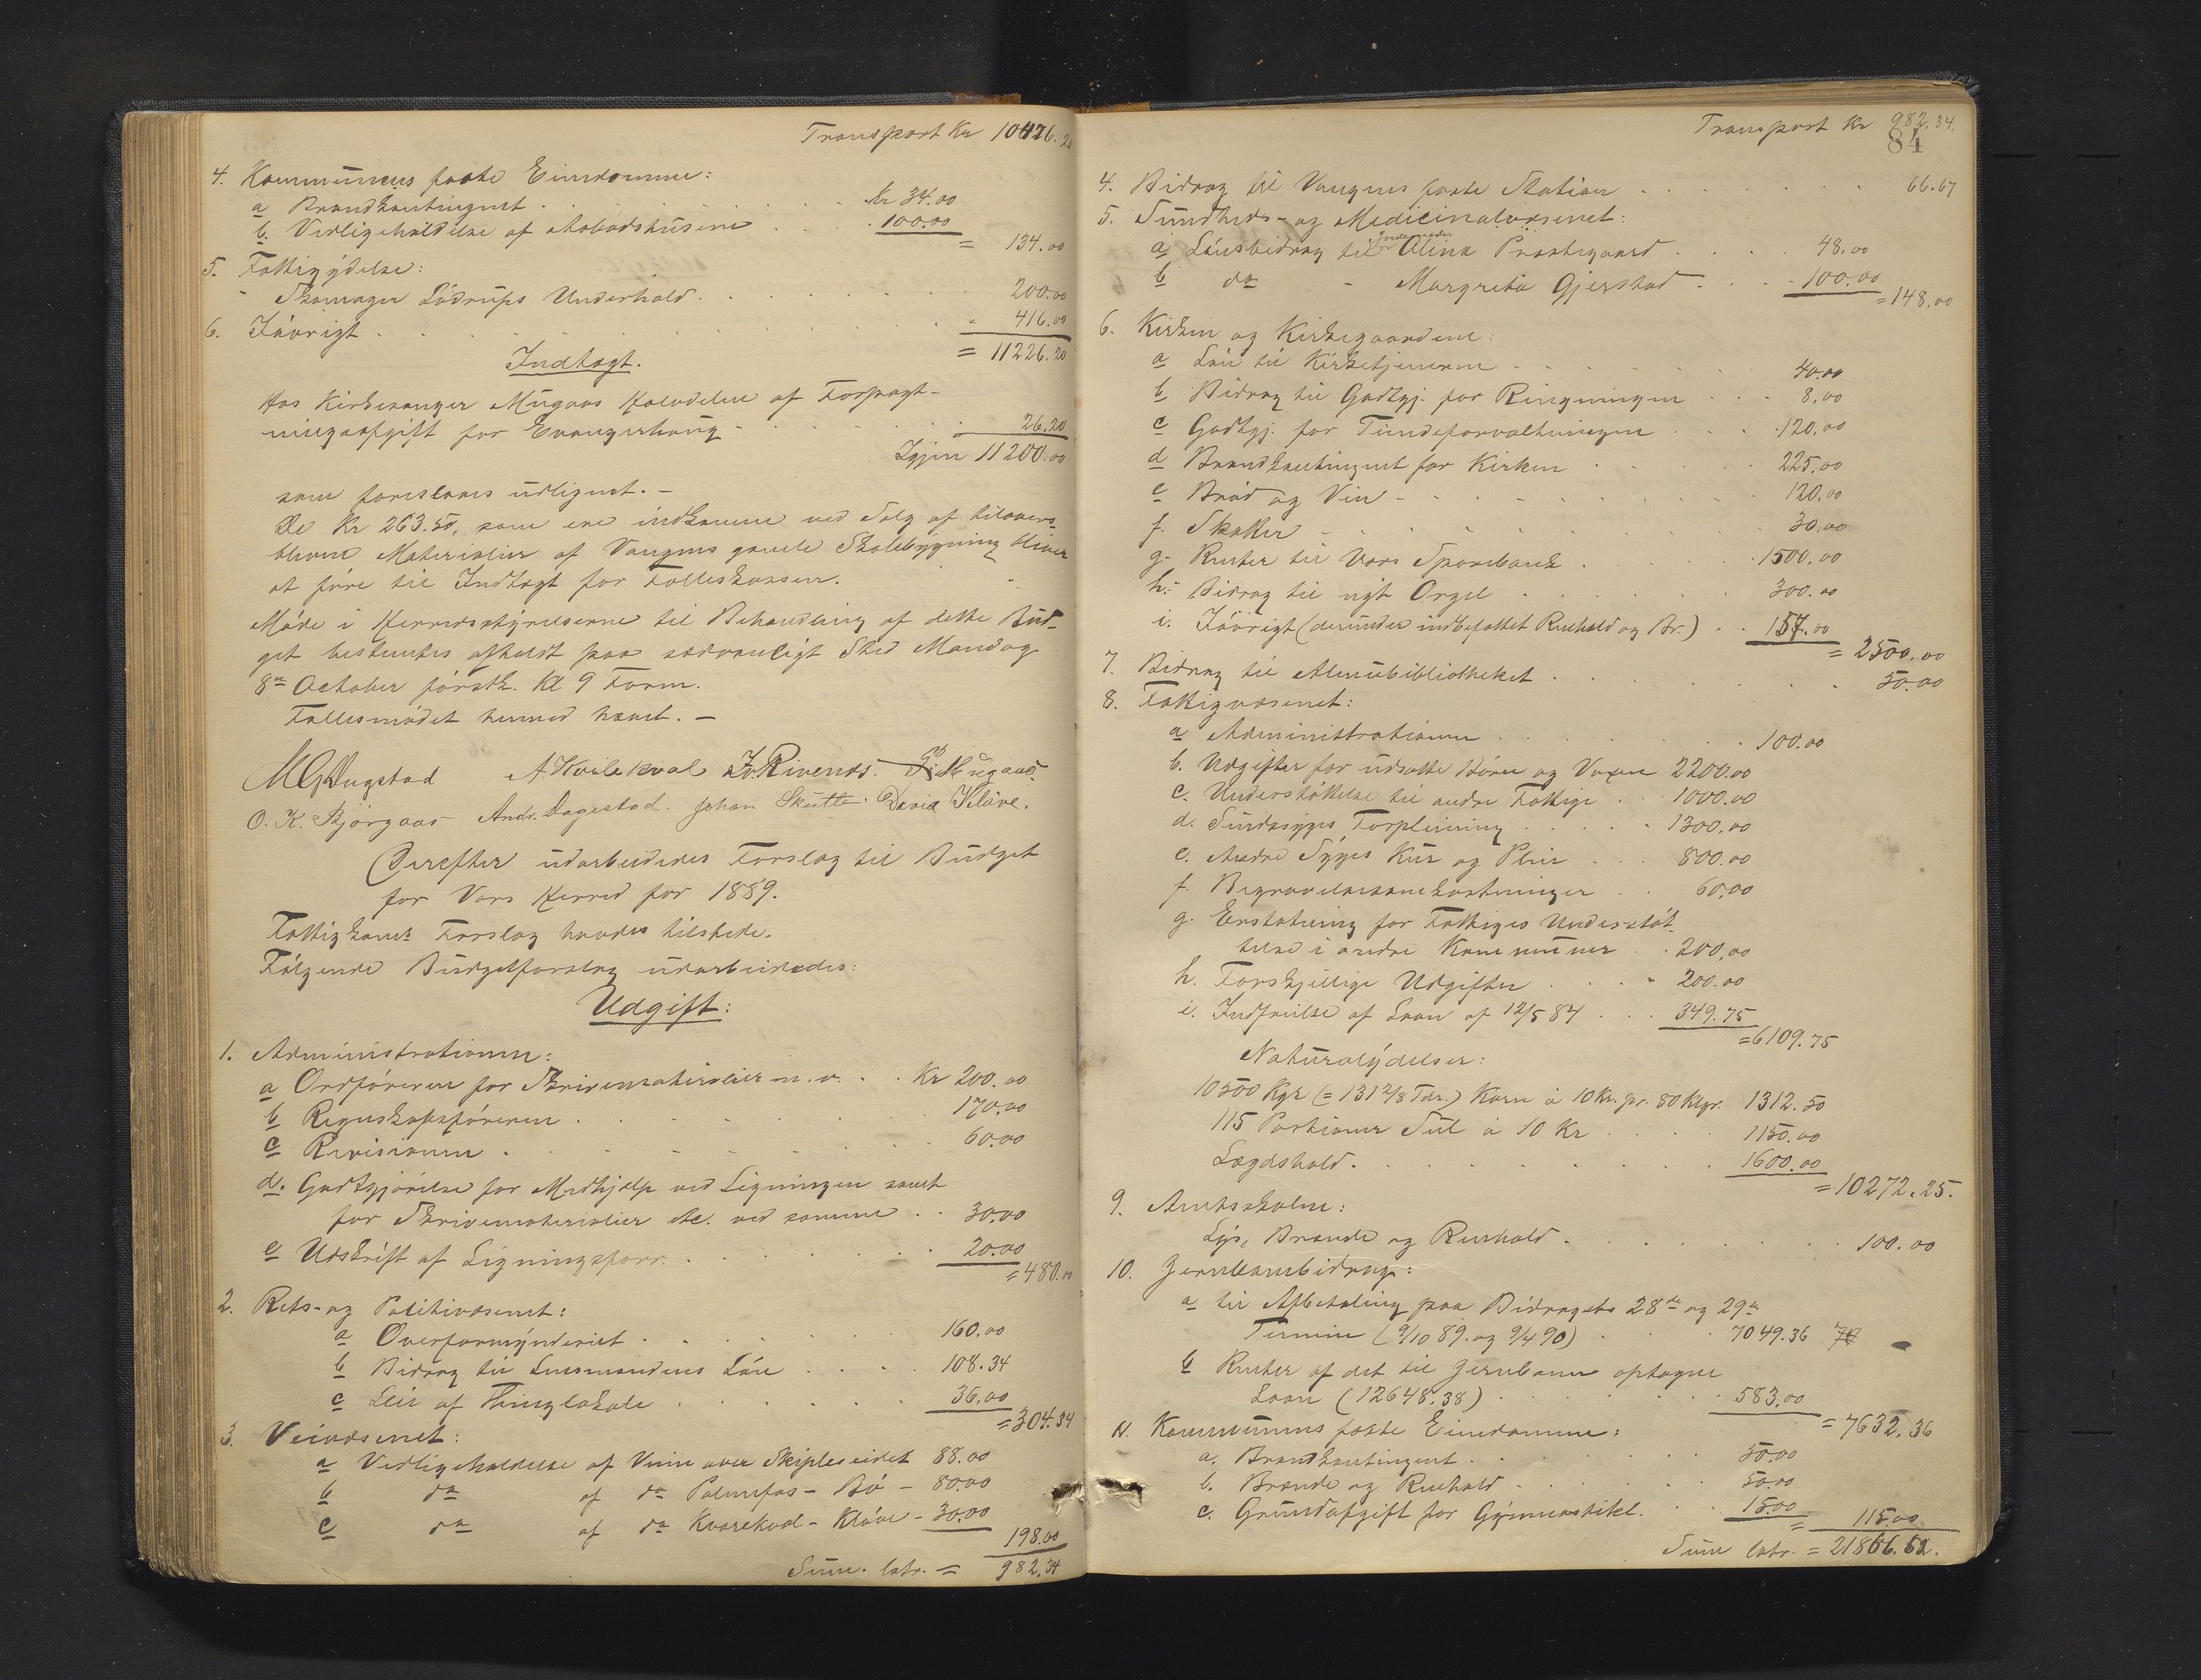 Transport Kr 10476.20
4. Kommunens faste Eiendomme:
a Brandkontingent . . . . kr 34.00
b. Vedligeholdelse af Arbeidshusene . . . 100.00
= 134.00
5. Fattigydelse:
Skomager Lódrups Underhold . . . . 200.00
6. Iövrigt . . . . 416.00
= 11226.20
Indtægt.
Hos Kirkesanger Mugaas Halvdelen af Forpagt-
ningsafgift for Evangerhaug . . . 26.20
Igjen 11200.00
som foreslaaes udlignet. –
De Kr 263.50, som ere indkomne ved Salg af tilovers-
blevne Materialier af Vangens gamle Skolebygning bliver
at före til Indtægt for Fælleskassen.
Möde i Herredsstyrelserne til Behandling af dette Bud-
get bestemtes afholdt paa sædvanligt Sted Mandag
8de October förstk. Kl 9 Form.
Fællesmödet hermed hævet. –
MGDugstad A. Kvilekval Iv Rivends. Mugaas.
O. K. Björgaas Andr. Dagestad. Johan Skutle. David Klöve.
Derefter udarbeidedes Forslag til Budget
for Vors Herred for 1889.
Fattigkoms Forslag havdes tilstede.
Fölgende Budgetforslag udarbeidedes:
Udgift:
1. Administrationen:
a Ordföreren for Skrivematerialier m. v. . . Kr 200.00
b Regnskabsföreren . . . . 170.00
c Revisionen . . . . 60.00
d. Godtgjörelse for Medhjelp ved Ligningen samt
for Skrivematerialier etc. ved samme . . 30.00
e Udskrift af Ligningsforr. . . . 20.00
= 480.00
2. Rets- og Politivæsenet:
a Overformynderiet . . . . 160.00
b Bidrag til Lensmandens Lön . . . . 108.34
c Leie af Thinglokale . . . . 36.00
= 304.34
3. Veivæsenet:
a Vedligeholdelse af Veien over Skipleseidet 88.00
b do af do Palmefos – Bö – 80.00
c do af do Kvarekval – Klöve – 30.00
198.00
Sum. latr. = 982.34
Transport Kr 982.34.
84
4. Bidrag til Vangens faste Station . . . . 66.67
5. Sundheds- og Medicinalvæsenet:
a Lönsbidrag til Jordemoder Olina Præstegaard . . . 48.00
b do - Margreta Gjerstad . . . 100.00
= 148.00
6. Kirken og Kirkegaardene:
a Lön til Kirketjeneren . . . . 40.00
b Bidrag til Godtgj. for Ringningen . . . 8.00
c Godtgj. for Tiendeforvaltningen . . . 120.00
d Brandkontingent for Kirken . . . 225.00
e Bröd og Vin . . . . 120.00
f. Skatter . . . . 30.00
g. Renter til Vors Sparebank . . . . 1500.00
h. Bidrag til nyt Orgel . . . . 300.00
i. Iövrigt (derunder indbefattet Renhold og Br.) . . 157.00
= 2500.00
7. Bidrag til Almuebibliotheket . . . . 50.00
8. Fattigvæsenet:
a Administrationen . . . . 100.00
b. Udgifter for udsatte Börn og Voxne 2200.00
c. Understöttelse til andre Fattige . . 1000.00
d. Sindssyges Forpleining . . . . 1300.00
e. Andre Syges Kur og Pleie . . . 800.00
f. Begravelsesomkostninger . . 60.00
g. Erstatning for Fattiges Understöt-
telse i andre Kommuner . . 200.00
h. Forskjellige Udgifter . . . . 200.00
i. Indfrielse af Laan af 12/5 84 . . . 349.75
= 6109.75
Naturalydelser:
10500 Kgr (= 131 2/8 Tdr.) Korn à 10 Kr. pr. 80 Klgr. 1312.50
115 Portioner Sul à 10 Kr . . . . 1150.00
Lægdshold . . . . 1600.00
= 10272.25.
9. Amtsskolen:
Lys, Brænde og Renhold . . . . 100.00
10. Jernbanebidrag:
a til Afbetaling paa Bidragets 28de og 29de
Termin (9/10 89. og 9/4 90) . . . 7049.36
b Renter af det til Jernbanen optagne
Laan (12648.38) . . . . 583.00
= 7632.36
11. Kommunens faste Eiendomme:
a. Brandkontingent . . . . 50.00
b. Brænde og Renhold . . . . 50.00
c. Grundafgift for Gymnastikl. . . 15.00
= 115.00
Sum latr. = 21866.62.